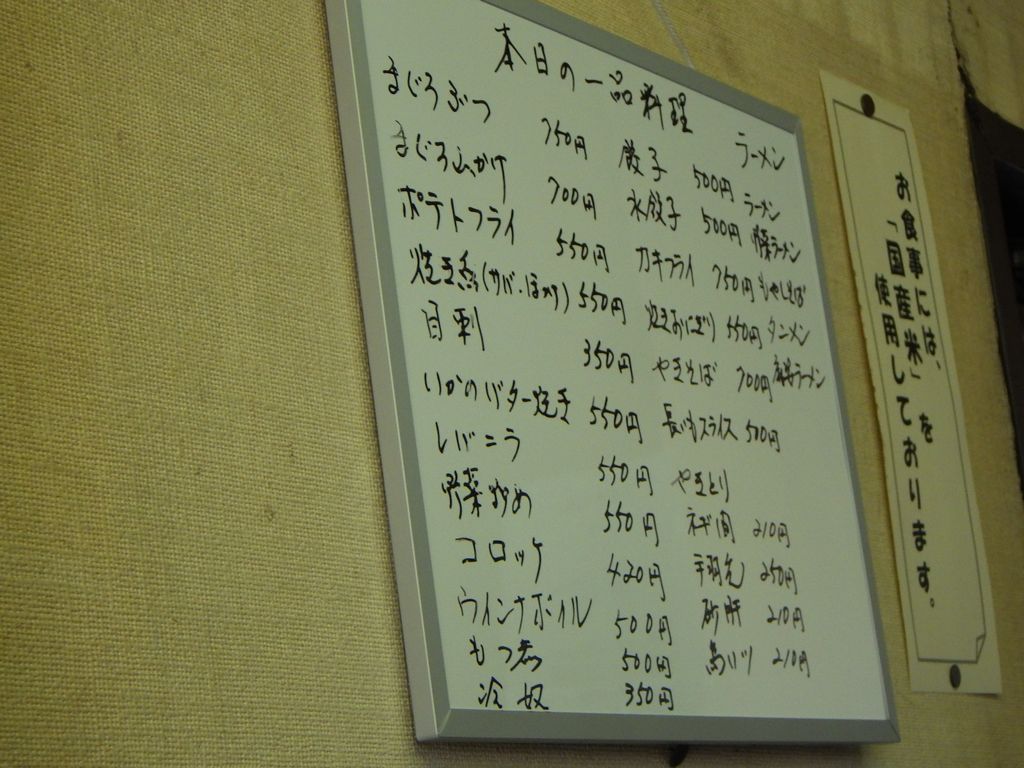 本日の一品料理
まぐろぶつ 750円
まぐろ山かけ 700円
ポテトフライ 550円
焼き魚(サバ・ほっけ) 550円
目刺 350円
いかのバター焼き 550円
レバニラ 550円
野菜炒め 550円
コロッケ 420円
ウインナボイル 500円
もつ煮 500円
冷奴 350円
餃子 500円
水餃子 500円
カキフライ 750円
焼おにぎり 550円
やきそば 700円
長いもスライス 500円
やきとり
ネギ間 210円
手羽先 250円
砂肝 210円
210円
ラーメン
ラーメン
ラーメン
もやしそば
タンメン
ラーメン
お食事には、
「国産米」を
使用しております。